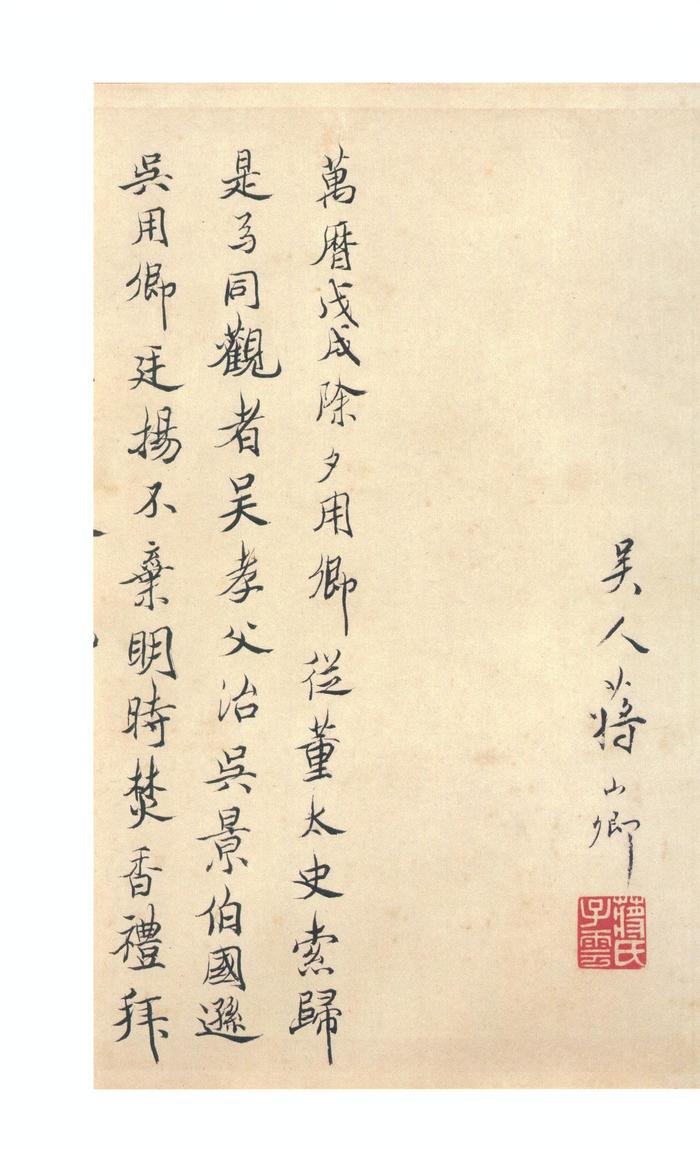 吳人蔣山卿
蔣氏子雲
萬曆戊戌除夕用卿從董太史索歸
是為同觀者吳孝父治吳景伯國遜
吳用卿廷揚不棄明時焚香禮拜